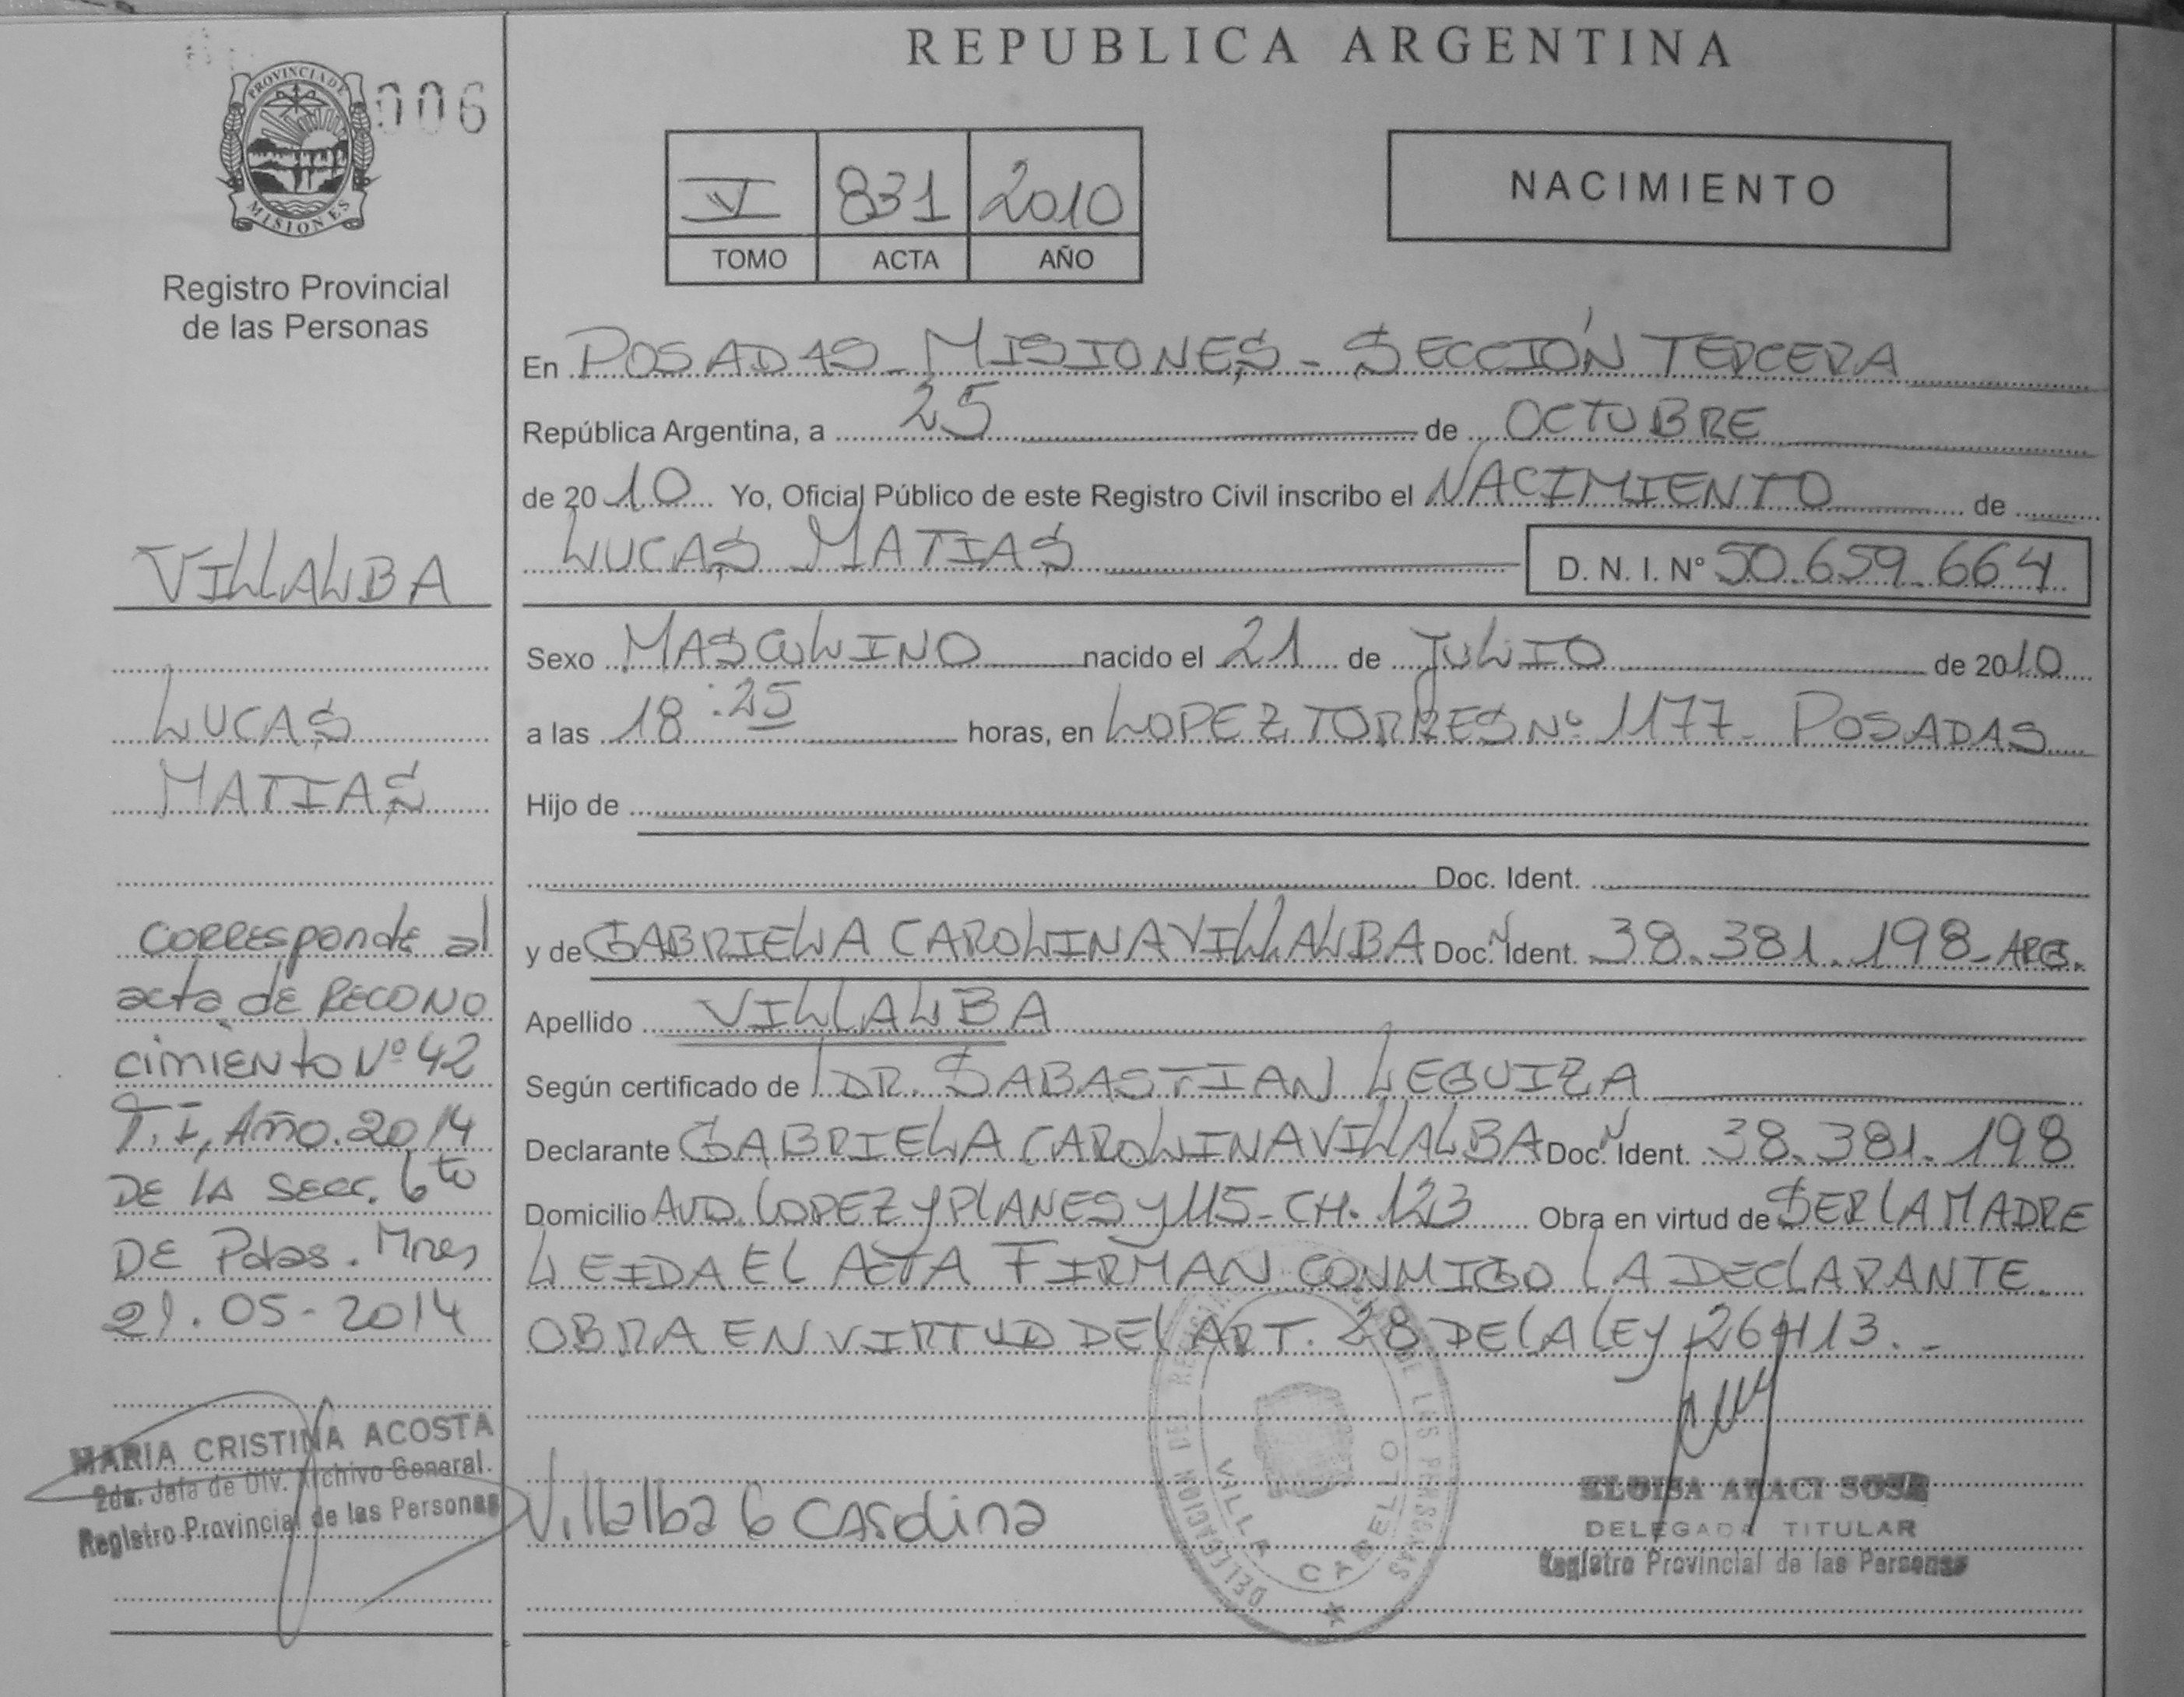 REPUBLICA ARGENTINA
PROVINCIA DE MISIONES
006
Registro Provincial
de las Personas
V 831 2010
TOMO ACTA AÑO
NACIMIENTO
En POSADAS - MISIONES - SECCIÓN TERCERA
República Argentina, a 25 de OCTUBRE
de 2010 Yo, Oficial Público de este Registro Civil inscribo el NACIMIENTO de
LUCAS MATIAS D. N. I. Nº 50.659.664
Sexo MASCULINO nacido el 21 de JULIO de 2010
a las 18:25 horas, en LOPEZ TORRES Nº 1177 - POSADAS
Hijo de
Doc. Ident.
y de GABRIELA CAROLINA VILLALBA Doc. N Ident. 38.381.198 - ARG.
Apellido VILLALBA
Según certificado de DR. SABASTIAN LEGUIZA
Declarante GABRIELA CAROLINA VILLALBA Doc. N Ident. 38.381.198
Domicilio AVD. LOPEZ Y PLANES Y 115 - CH. 123 Obra en virtud de SER LA MADRE
LEIDA EL ACTA FIRMAN CONMIGO LA DECLARANTE.
OBRA EN VIRTUD DEL ART. 28 DE LA LEY 26413. -
Villalba G Carolina
DELEGACION DEL REGISTRO DE LAS PERSONAS
VILLA CABELLO
ELOISA ARACI SOSA
DELEGADA TITULAR
Registro Provincial de las Personas
VILLALBA
LUCAS
MATIAS
Corresponde al
acta de RECONO
cimiento Nº 42
T. I, Año. 2014
DE LA SECC. 6to
DE Pdas. Mnes
21.05-2014
MARIA CRISTINA ACOSTA
2da. Jefa de Div. Archivo General.
Registro Provincial de las Personas